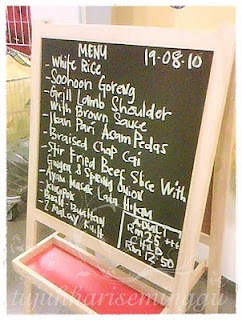 MENU 19·08·10
- White Rice
- Soohoon Goreng
- Grill Lamb Shoulder
With Brown Sauce
- Ikan Pari Asam Pedas
- Braised Chap Cai
- Stir Fried Beef Slice With
Ginger & Spring Onion
- Ayam Masak Lada Hitam
- Keropok
- Buah
- 2
ADULT
RM 25 ++
CHILD
RM 12.50
tujuhhariseminggu